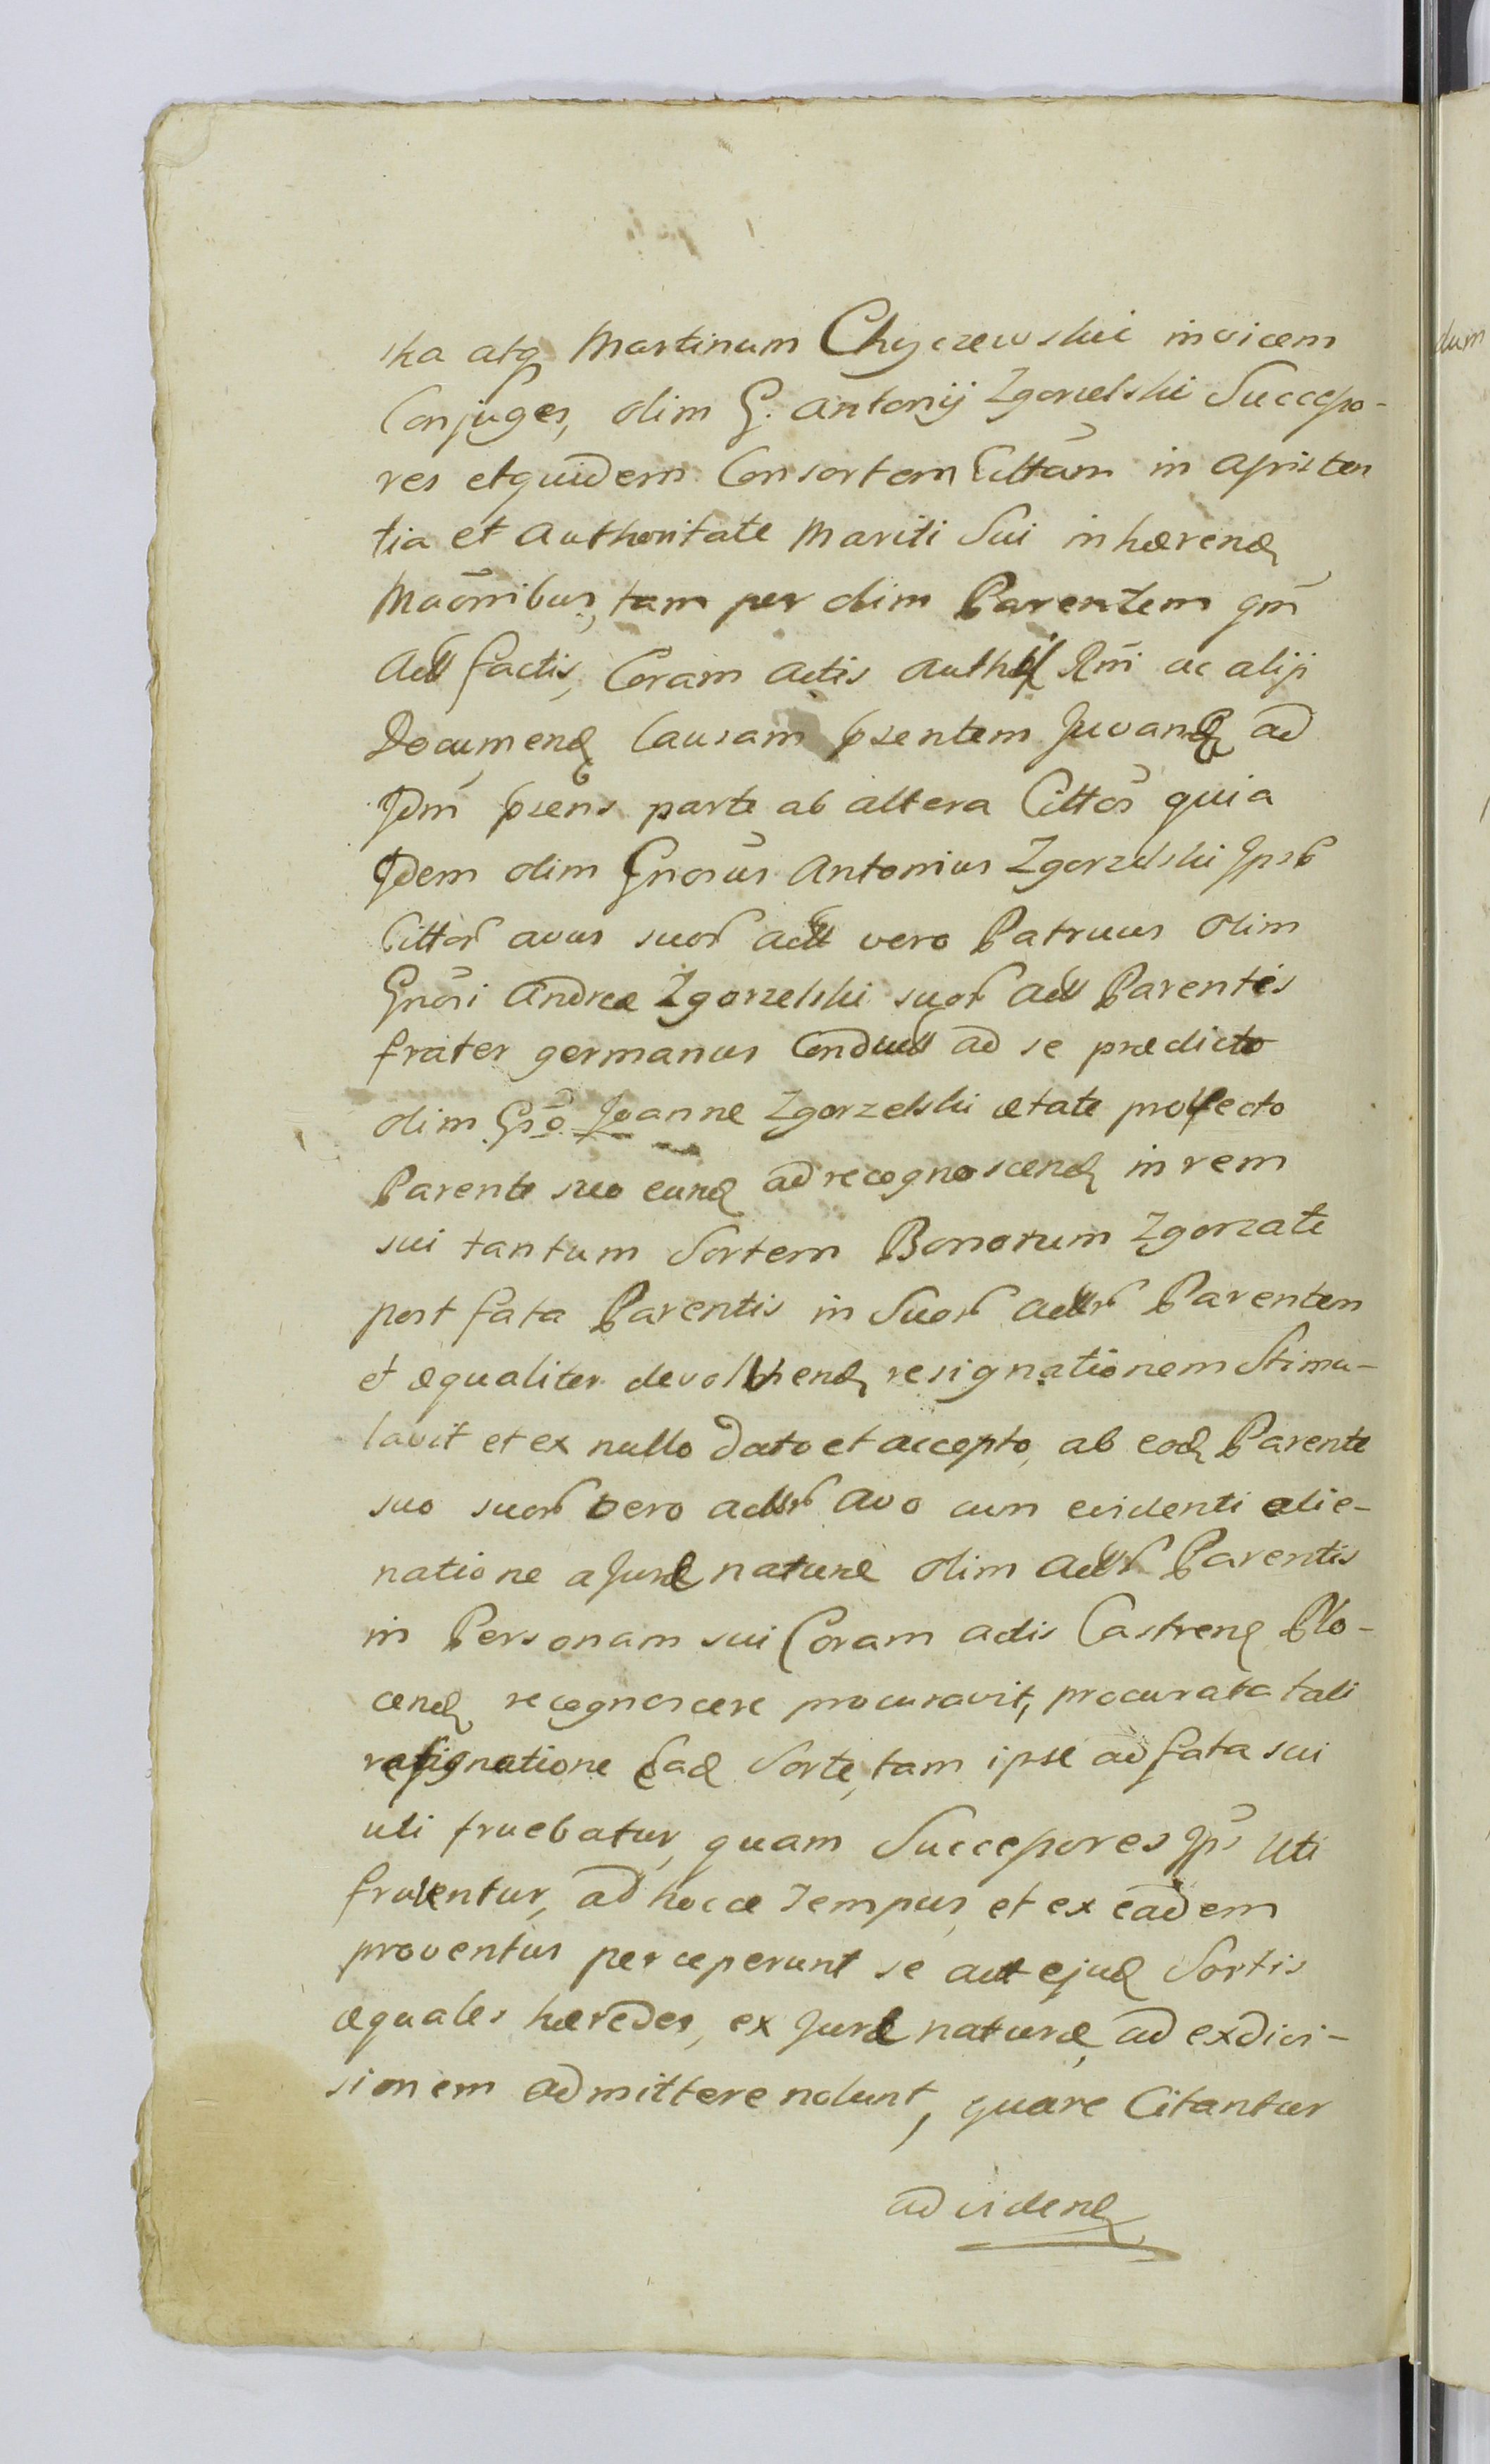 ska atq Martinum Chyczewskie invicem
Conjuges, olim G. Antonij Zgorzelski Successo-
res et quidem Consortem Cittam in assisten
tia et Authoritate Mariti Sui inhærend
Maonibus, tam per olim Parentem qm
Act factis, Coram Actis Auth Rni ac alijs
Documend Causam psentem Juvand ad
Idm psens parte ab altera Cittos quia
Idem olim Gnosus Antonius Zgorzelski Ipsor
Cittor avus suor act vero Patruus olim
Gnosi Andreæ Zgorzelski suor Act Parentis
frater germanus Condues ad se prædicto
olim Gso Joanne Zgorzelski ætate provecto
Parente suo eund ad recognoscend in rem
sui tantum Sortem Bonorum Zgorzate
post fata Parentis in Suor Actor Parentem
et æqualiter devolvend resignationem Stimu-
lavit et ex nullo dato et accepto, ab eod Parente
suo suor vero actor Avo cum evidenti alie-
natione a Jure naturæ olim Actor Parentis
in Personam sui Coram actis Castrens Plo-
cens recognoscere procuravit, procurata tali
resignatione Ead Sorte, tam ipse ad fata sui
uti fruebatur, quam Successores Ips uti
fruuntur, ad hocce Tempus, et ex eadem
proventus perceperunt se aut ejusd Sortis
æquales hæredes, ex Jure naturæ, ad exdivi-
sionem admittere nolunt, quare Citantur
ad vidend
dum